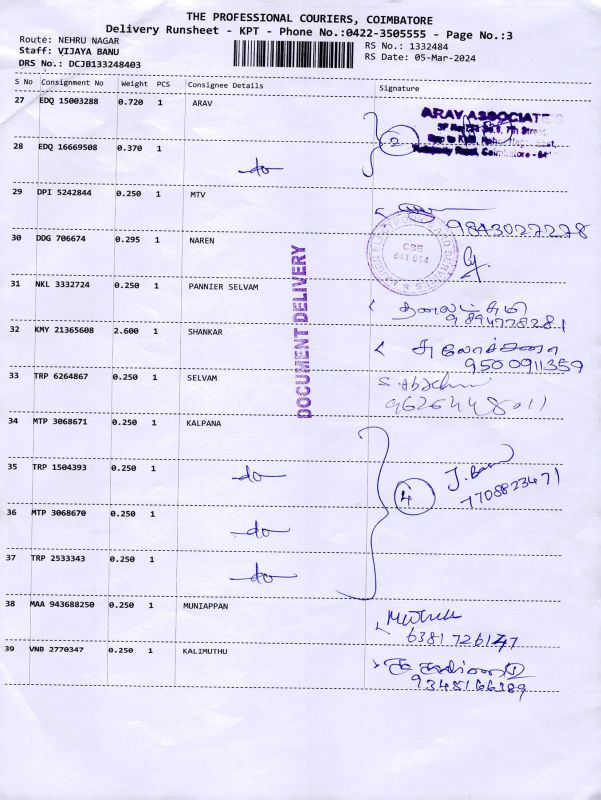 THE PROFESSIONAL COURIERS, COIMBATORE
Delivery Runsheet - KPT - Phone No.:0422-3505555 - Page No.:3
Route: NEHRU NAGAR
RS No.: 1332484
Staff: VIJAYA BANU
RS Date: 05-Mar-2024
DRS No.: DCJB133248403
S No Consignment No Weight PCS Consignee Details Signature
27 EDQ 15003288 0.720 1 ARAV
ARAV ASSOCIATES
28 EDQ 16669508 0.370 1
2
Coimbatore - 14
do
29 DPI 5242844 0.250 1 MTV
9843027278
30 DDG 706674 0.295 1 NAREN
CBE
641 014
DOCUMENT DELIVERY
31 NKL 3332724 0.250 1 PANNIER SELVAM
9894778281
32 KMY 21365608 2.600 1 SHANKAR
சுலோச்சனா
9500911359
33 TRP 6264867 0.250 1 SELVAM
9626448011
34 MTP 3068671 0.250 1 KALPANA
35 TRP 1504393 0.250 1 do
4
7708823471
36 MTP 3068670 0.250 1 do
37 TRP 2533343 0.250 1 do
38 MAA 943688250 0.250 1 MUNIAPPAN
6381726147
39 VNB 2770347 0.250 1 KALIMUTHU
9345166389